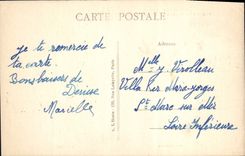 CARTE POSTALE
Adresse
je te remercie de
ta carte
Bons baisers de
Denise
Marielle
Melle Y Virolleau
Villa Ker
St Marc sur Mer
Loire Inférieure